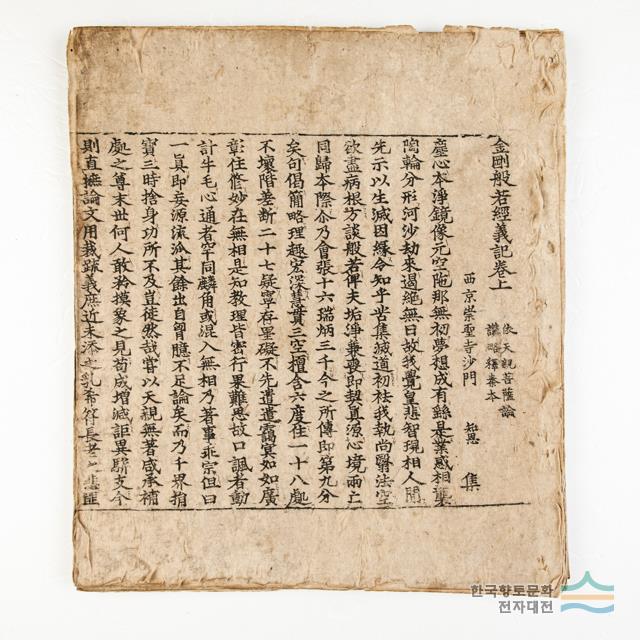 金剛般若經義記卷上
依天親菩薩論
讚略釋秦本
西京崇聖寺沙門 知恩 集
塵心本淨鏡像元空陁那無初夢想成有緜是業惑相襲
陶輪分形河沙劫來過絕無日故我覺皇悲智現相人閒
先示以生滅因緣令知乎苦集滅道初祛我執尚翳法空
欲盡病根方談般若俾夫垢淨兼喪即契真源心境兩亡
同歸本際佘乃會張十六瑞炳三千今之所傳即第九分
矣句偈簡略理趣宏深慧貫三空檀含六度住一十八處
不壞階差斷二十七疑寧存墨礙不先遣遣靄寞如如廣
彰住修妙在無相是知教理皆密行果難思故口諷者動
計牛毛心通者罕同麟角或混入無相乃著事乖宗但曰
一眞即妄源流派其餘出自胷臆不足論矣而乃千界捐
寶三時捨身功所不及豈徒然哉嘗以天親無著咸承補
處之尊末世何人敢矜摸象之見苟成增減詎異駢支今
則直摭論文用裁疏義庶近未添之乳希符長老之悲匪
한국향토문화
전자대전